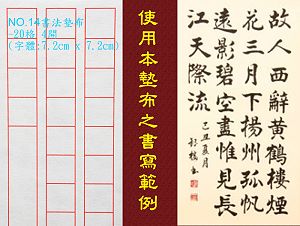 NO.14書法墊布
-20格 4開
(字體:7.2cm x 7.2cm)
使用本墊布之書寫範例
故人西辭黃鶴樓煙
花三月下揚州孤帆
遠影碧空盡惟見長
江天際流
己丑夏月